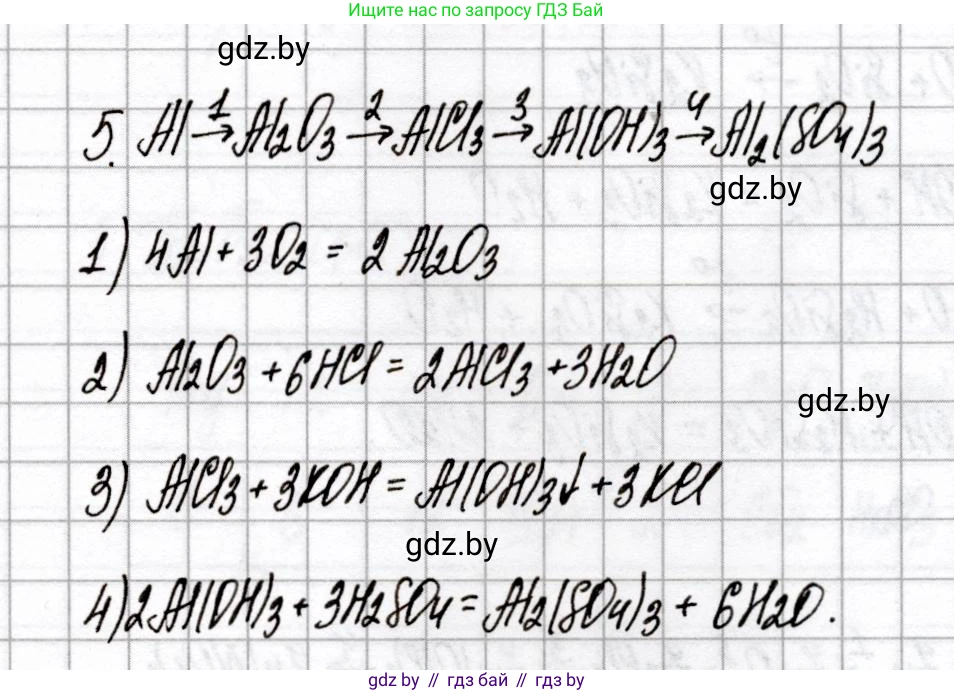 Ищите нас по запросу ГДЗ Бай
gdz.by
5. Al →¹ Al₂O₃ →² AlCl₃ →³ Al(OH)₃ →⁴ Al₂(SO₄)₃
gdz.by
1) 4Al + 3O₂ = 2Al₂O₃
2) Al₂O₃ + 6HCl = 2AlCl₃ + 3H₂O
gdz.by
3) AlCl₃ + 3KOH = Al(OH)₃↓ + 3KCl
gdz.by
4) 2Al(OH)₃ + 3H₂SO₄ = Al₂(SO₄)₃ + 6H₂O.
gdz.by // гдз бай // gdz.by